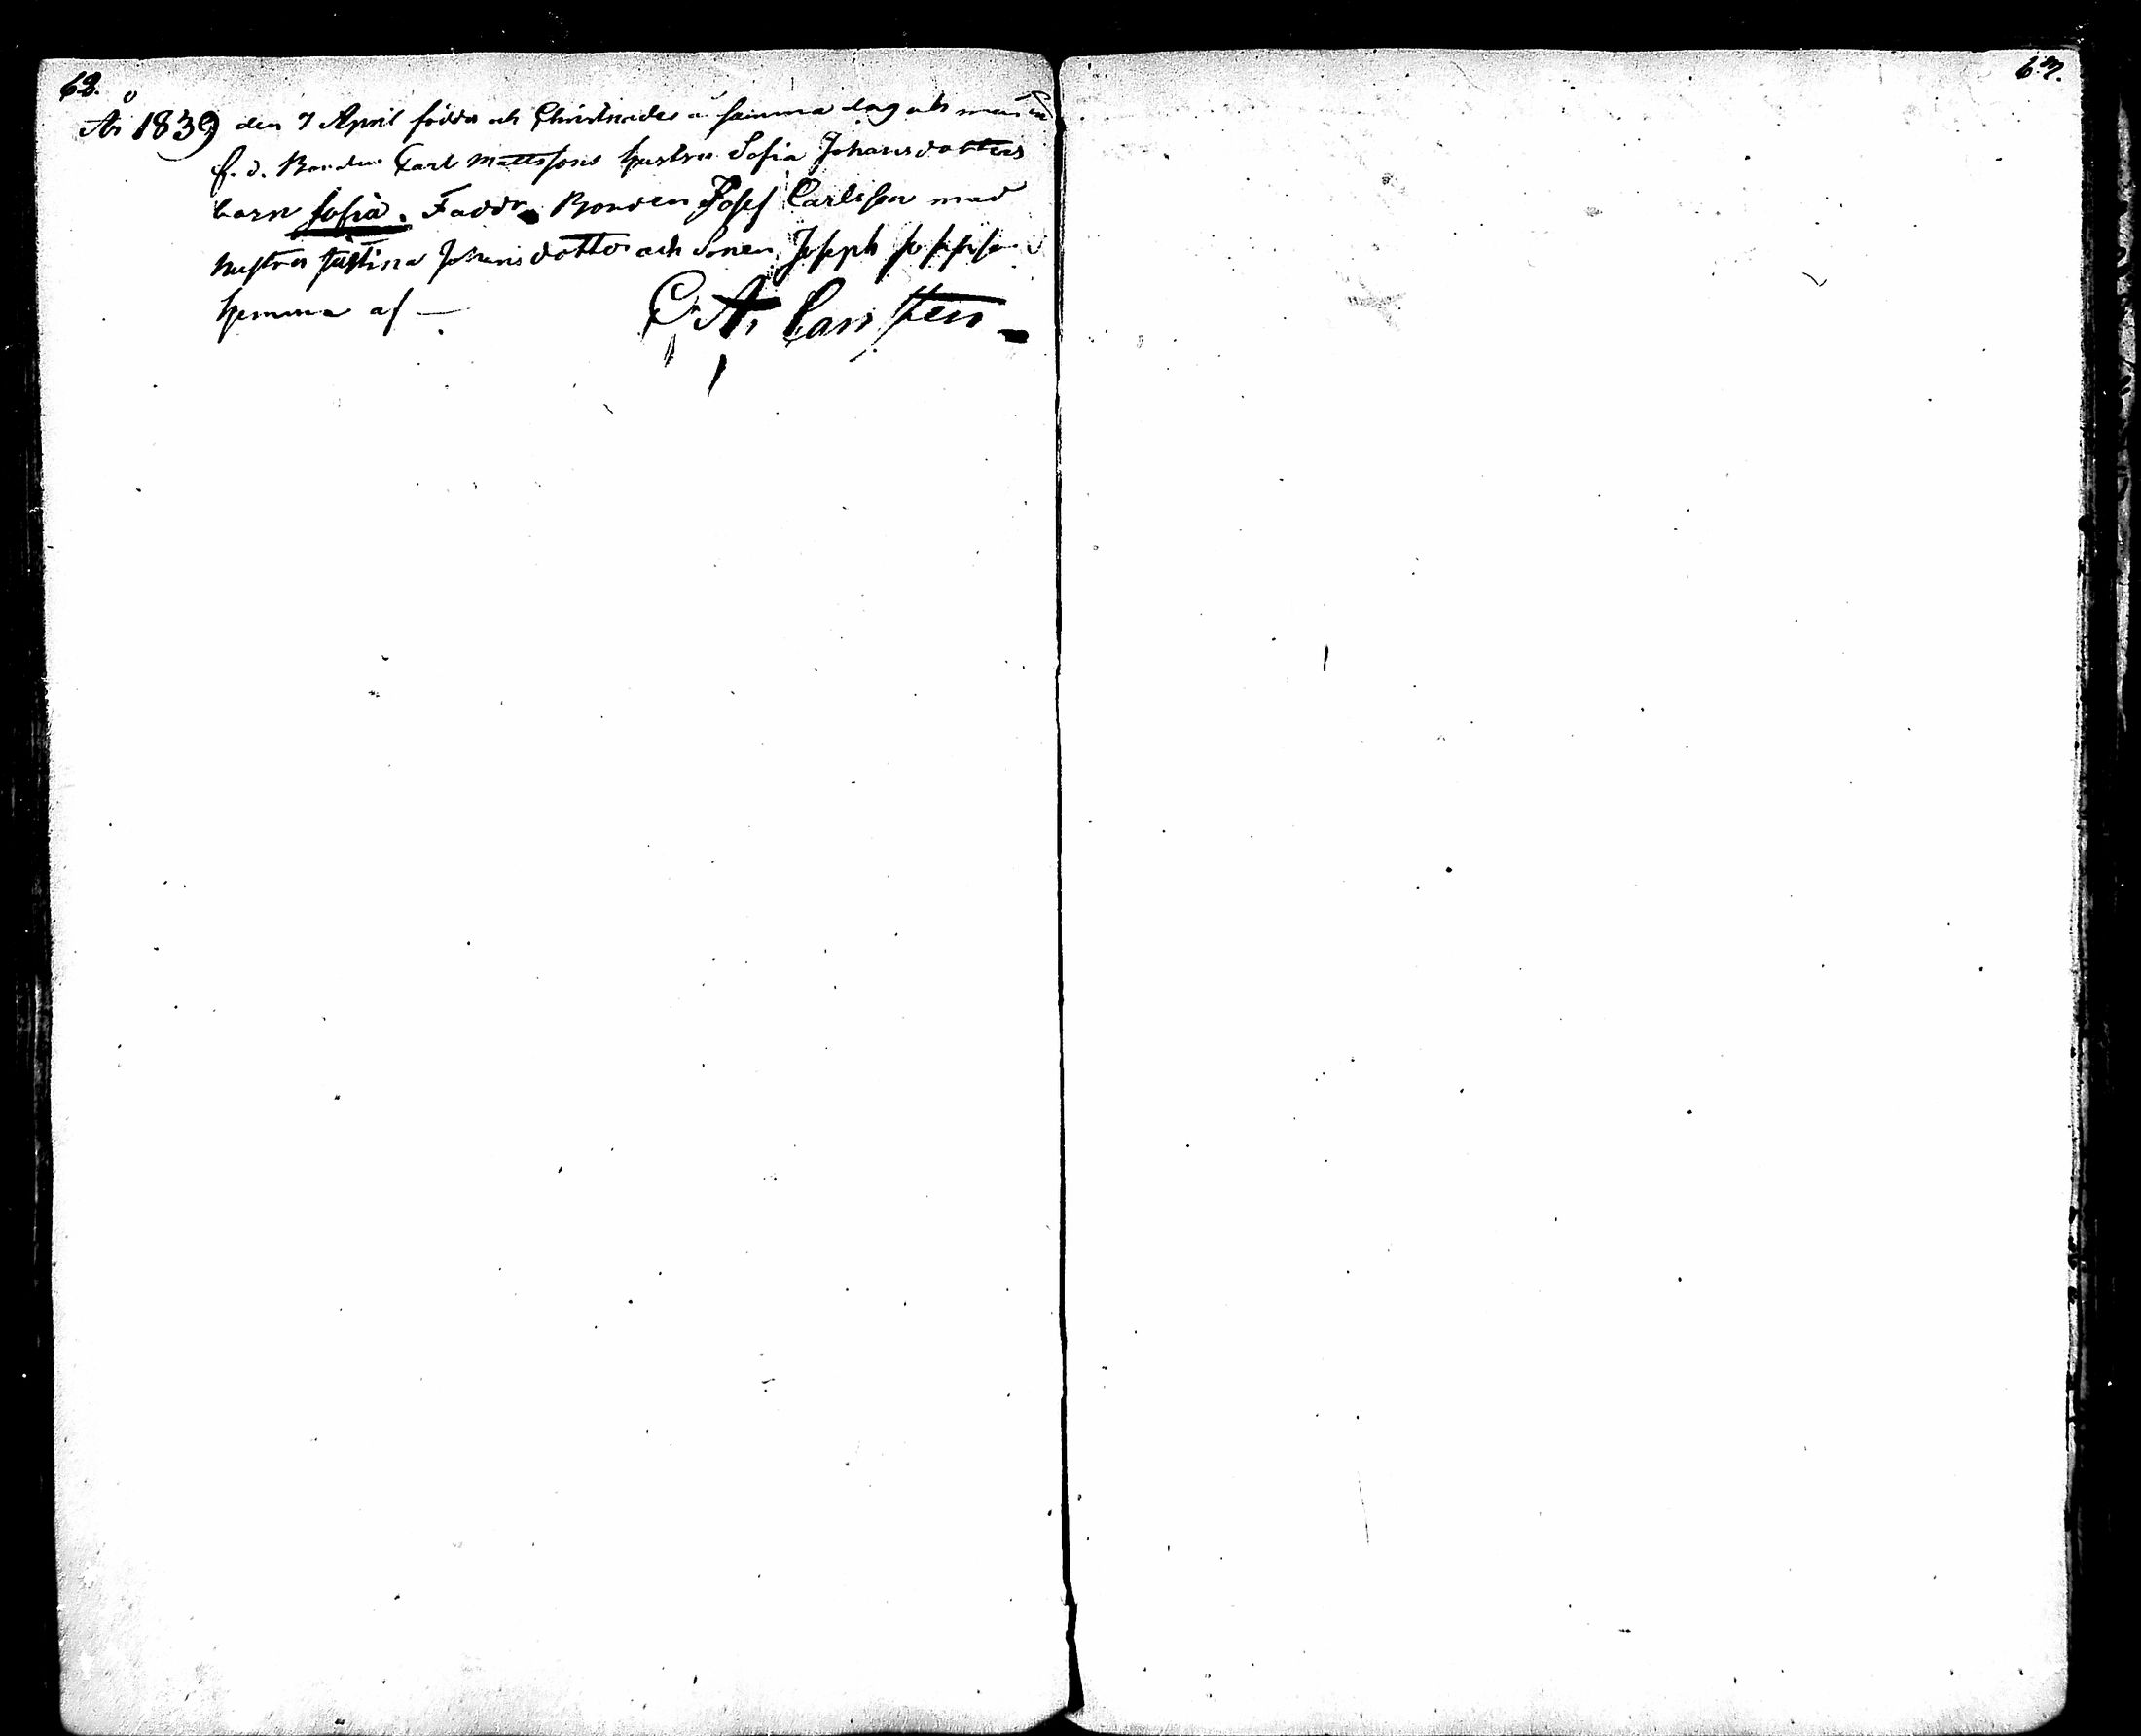 62.
År 1839 den 7 April föddes och Christnades å samma dag och månad
f. d. Bonden Carl Mattssons hustru Sofia Johansdotters
barn Sofia. Faddr. Bonden Josef Carlsson med
hustru Justina Johansdotter och Sonen Joseph Josephsson
hemma af —
C. A. Carsten
63.